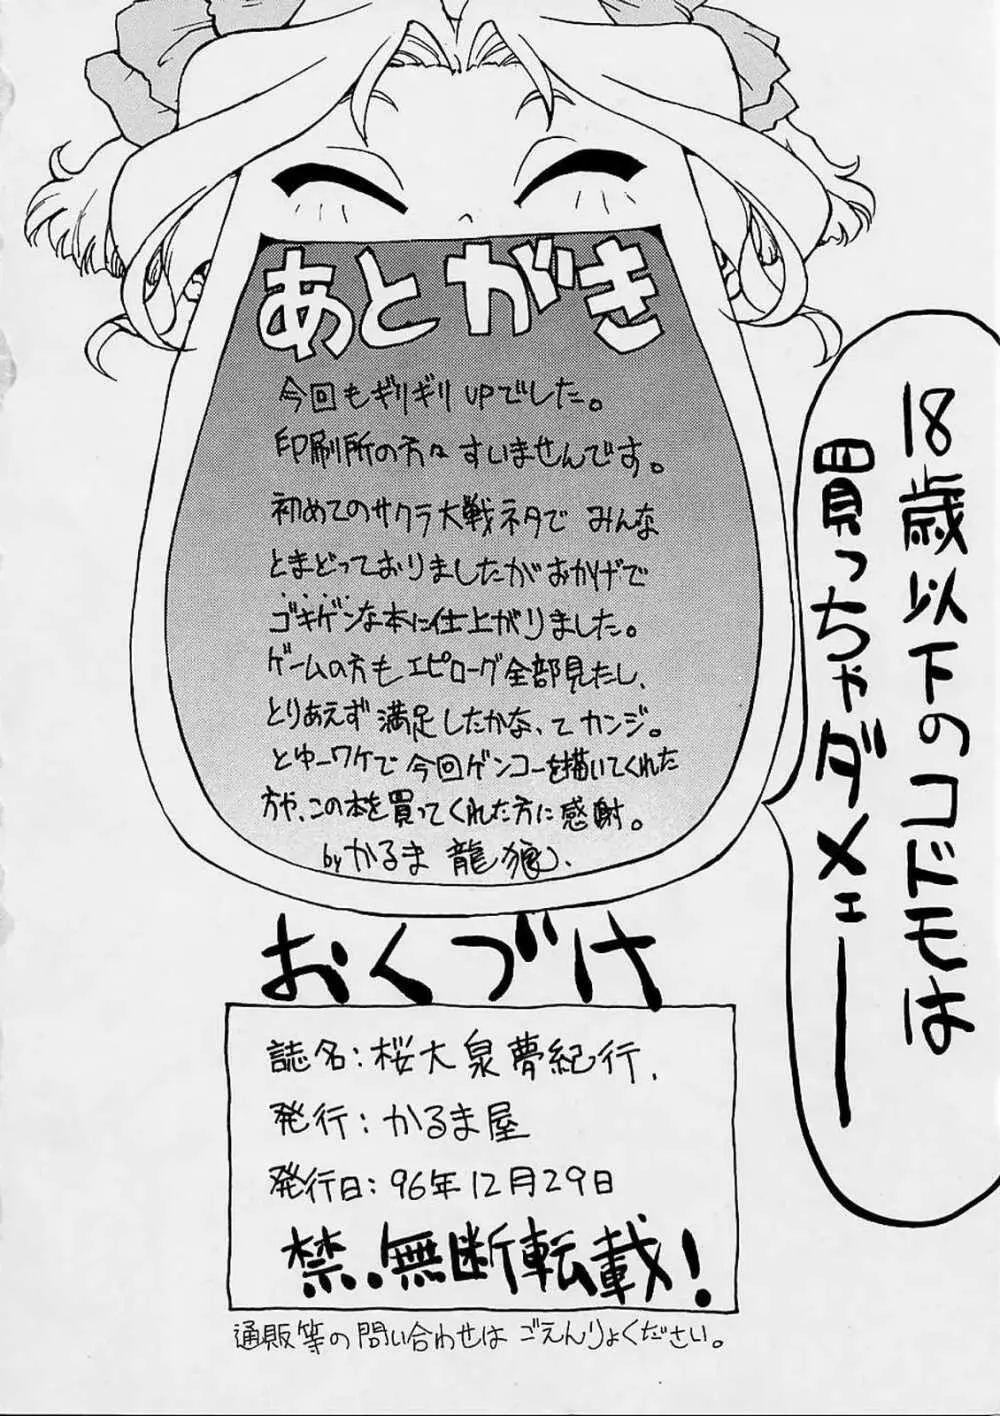 18歳以下のコドモは
買っちゃダメェー
あとがき
今回もギリギリUPでした。
印刷所の方々すいませんです。
初めてのサクラ大戦ネタでみんな
とまどっておりましたがおかげで
ゴキゲンな本に仕上がりました。
ゲームの方もエピローグ全部見たし、
とりあえず満足したかな、てカンジ。
とゆーワケで今回ゲンコーを描いてくれた
方や、この本を買ってくれた方に感謝。
byかるま龍狼、
おくづけ
誌名:桜大泉夢紀行.
発行:かるま屋
発行日:96年12月29日
禁.無断転載!
通販等の問い合わせはごえんりょください。